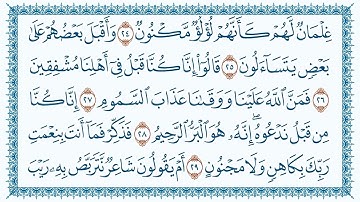 غِلْمَانٌ لَّهُمْ كَأَنَّهُمْ لُؤْلُؤٌ مَّكْنُونٌ ٢٤ وَأَقْبَلَ بَعْضُهُمْ عَلَىٰ
بَعْضٍ يَتَسَاءَلُونَ ٢٥ قَالُوا إِنَّا كُنَّا قَبْلُ فِي أَهْلِنَا مُشْفِقِينَ
٢٦ فَمَنَّ اللَّهُ عَلَيْنَا وَوَقَىٰنَا عَذَابَ السَّمُومِ ٢٧ إِنَّا كُنَّا
مِن قَبْلُ نَدْعُوهُ إِنَّهُ هُوَ الْبَرُّ الرَّحِيمُ ٢٨ فَذَكِّرْ فَمَا أَنتَ بِنِعْمَتِ
رَبِّكَ بِكَاهِنٍ وَلَا مَجْنُونٍ ٢٩ أَمْ يَقُولُونَ شَاعِرٌ نَّتَرَبَّصُ بِهِ رَيْبَ